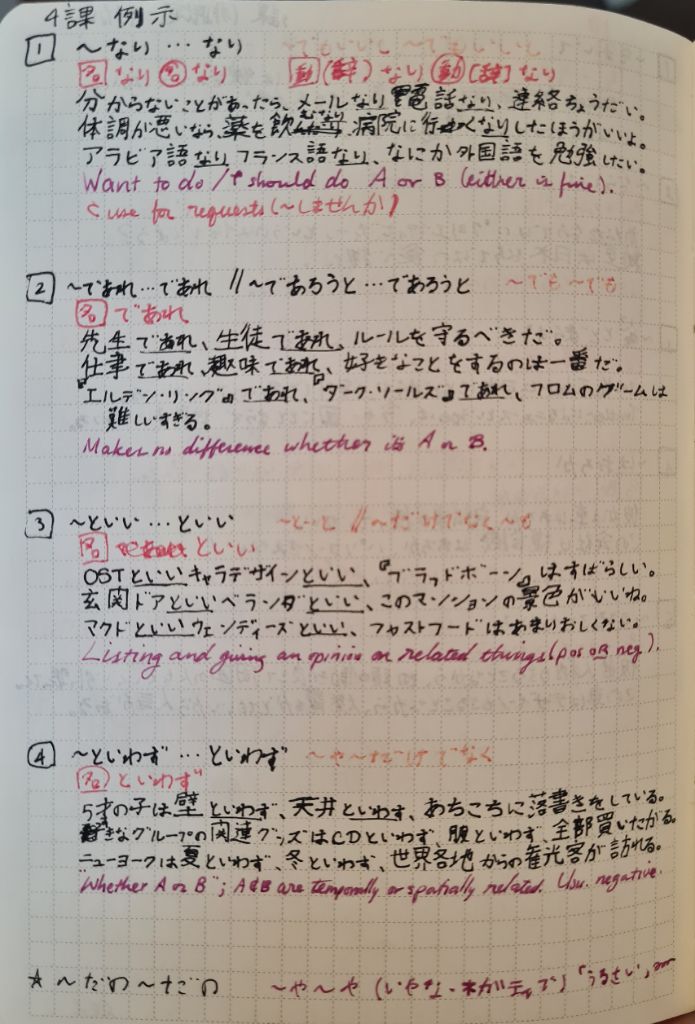 4課 例示
1 〜なり…なり
名なり名なり 動(辞)なり動[辞]なり
分からないことがあったら、メールなり電話なり、連絡ちょうだい。
体調が悪いなら、薬を飲むなり病院に行くなりしたほうがいいよ。
アラビア語なりフランス語なり、なにか外国語を勉強したい。
Want to do / should do A or B (either is fine).
use for requests (〜しませんか)
2 〜であれ…であれ // 〜であろうと…であろうと 〜でも〜でも
名であれ
先生であれ、生徒であれ、ルールを守るべきだ。
仕事であれ、趣味であれ、好きなことをするのは一番だ。
『エルデン・リング』であれ、『ダーク・ソールズ』であれ、フロムのゲームは
難しすぎる。
Makes no difference whether is A or B.
3 〜といい…といい 〜と〜と // 〜だけでなく〜も
名 といい
OSTといいキャラデザインといい、『ブラッドボーン』はすばらしい。
玄関ドアといいベランダといい、このマンションの景色がいいね。
マクドといいウェンディーズといい、ファストフードはあまりおしくない。
Listing and giving an opinion on related things (pos OR neg).
4 〜といわず…といわず 〜や〜だけでなく
名といわず
5才の子は壁といわず、天井といわず、あちこちに落書きをしている。
好きなグループの関連グッズはCDといわず、服といわず、全部買いたがる。
ニューヨークは夏といわず、冬といわず、世界各地からの観光客が訪れる。
"Whether A or B"; A&B are temporally or spatially related. Usu. negative.
☆ 〜だの〜だの 〜や〜や (いやな・ネガティブ)「うるさい」